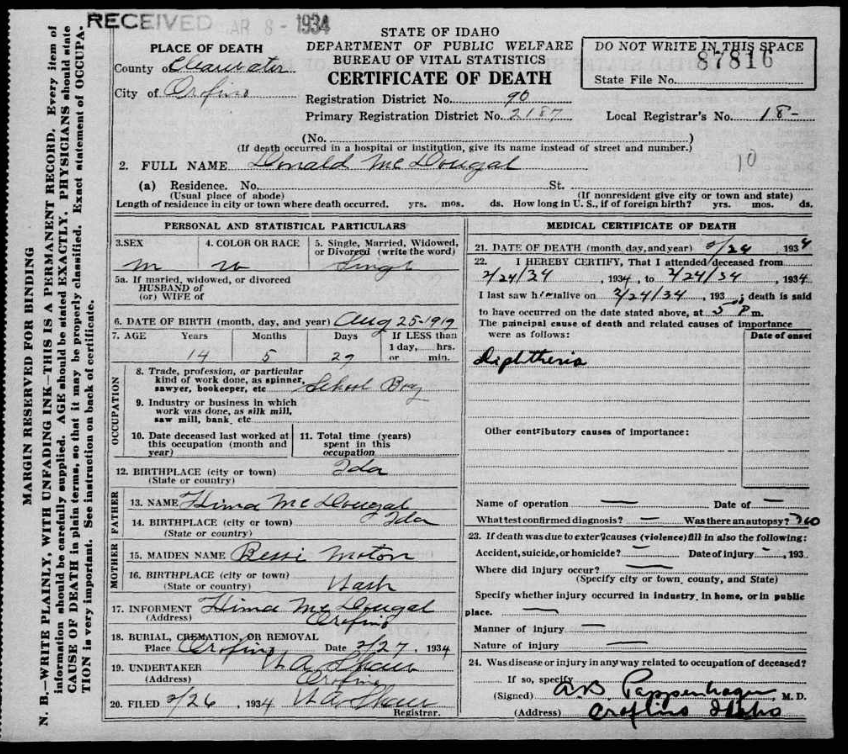 RECEIVED MAR 8 - 1934
STATE OF IDAHO
DEPARTMENT OF PUBLIC WELFARE
BUREAU OF VITAL STATISTICS
CERTIFICATE OF DEATH
PLACE OF DEATH
County of Clearwater
City of Orofino
DO NOT WRITE IN THIS SPACE
87816
State File No.
Registration District No. 90
Primary Registration District No. 2187 Local Registrar's No. 18-
(No. )
(If death occurred in a hospital or institution, give its name instead of street and number.)
10
2. FULL NAME Donald McDougal
(a) Residence. No. St.
(Usual place of abode) (If nonresident give city or town and state)
Length of residence in city or town where death occurred. yrs. mos. ds. How long in U. S., if of foreign birth? yrs. mos. ds.
PERSONAL AND STATISTICAL PARTICULARS
3. SEX 4. COLOR OR RACE 5. Single, Married, Widowed, or Divorced (write the word)
M W Singl
5a. If married, widowed, or divorced
HUSBAND of
(or) WIFE of
6. DATE OF BIRTH (month, day, and year) Aug 25-1919
7. AGE Years Months Days If LESS than
1 day, hrs.
14 5 29 or min.
OCCUPATION
8. Trade, profession, or particular
kind of work done, as spinner,
sawyer, bookeper, etc School Boy
9. Industry or business in which
work was done, as silk mill,
saw mill, bank, etc
10. Date deceased last worked at
this occupation (month and
year)
11. Total time (years)
spent in this
occupation
12. BIRTHPLACE (city or town) Ida
(State or country)
FATHER
13. NAME Hima McDougal
14. BIRTHPLACE (city or town) Ida
(State or country)
MOTHER
15. MAIDEN NAME Bessi Moton
16. BIRTHPLACE (city or town)
(State or country) Wash
17. INFORMENT Hima McDougal
(Address) Orofino
18. BURIAL, CREMATION, OR REMOVAL
Place Orofino Date 2/27, 1934
19. UNDERTAKER W A Shaw
(Address) Orofino
20. FILED 2/26, 1934 W A Shaw
Registrar.
MEDICAL CERTIFICATE OF DEATH
21. DATE OF DEATH (month, day, and year) 2/24 1934
22. I HEREBY CERTIFY, That I attended deceased from
2/24/34, 1934, to 2/24/34, 1934
I last saw h im alive on 2/24/34, 193 ; death is said
to have occurred on the date stated above, at 5 P m.
The principal cause of death and related causes of importance
were as follows: Date of onset
Diphtheria
Other contributory causes of importance:
Name of operation — Date of —
What test confirmed diagnosis? — Was there an autopsy? no
23. If death was due to exter'l causes (violence) fill in also the following:
Accident, suicide, or homicide? — Date of injury —, 193
Where did injury occur? —
(Specify city or town, county, and State)
Specify whether injury occurred in industry, in home, or in public
place. —
Manner of injury —
Nature of injury —
24. Was disease or injury in any way related to occupation of deceased?
If so, specify
(Signed) A.B. Pappenhagen M. D.
(Address) Orofino Idaho
MARGIN RESERVED FOR BINDING
N. B.—WRITE PLAINLY, WITH UNFADING INK—THIS IS A PERMANENT RECORD. Every item of
information should be carefully supplied. AGE should be stated EXACTLY. PHYSICIANS should state
CAUSE OF DEATH in plain terms, so that it may be properly classified. Exact statement of OCCUPA-
TION is very important. See instruction on back of certificate.